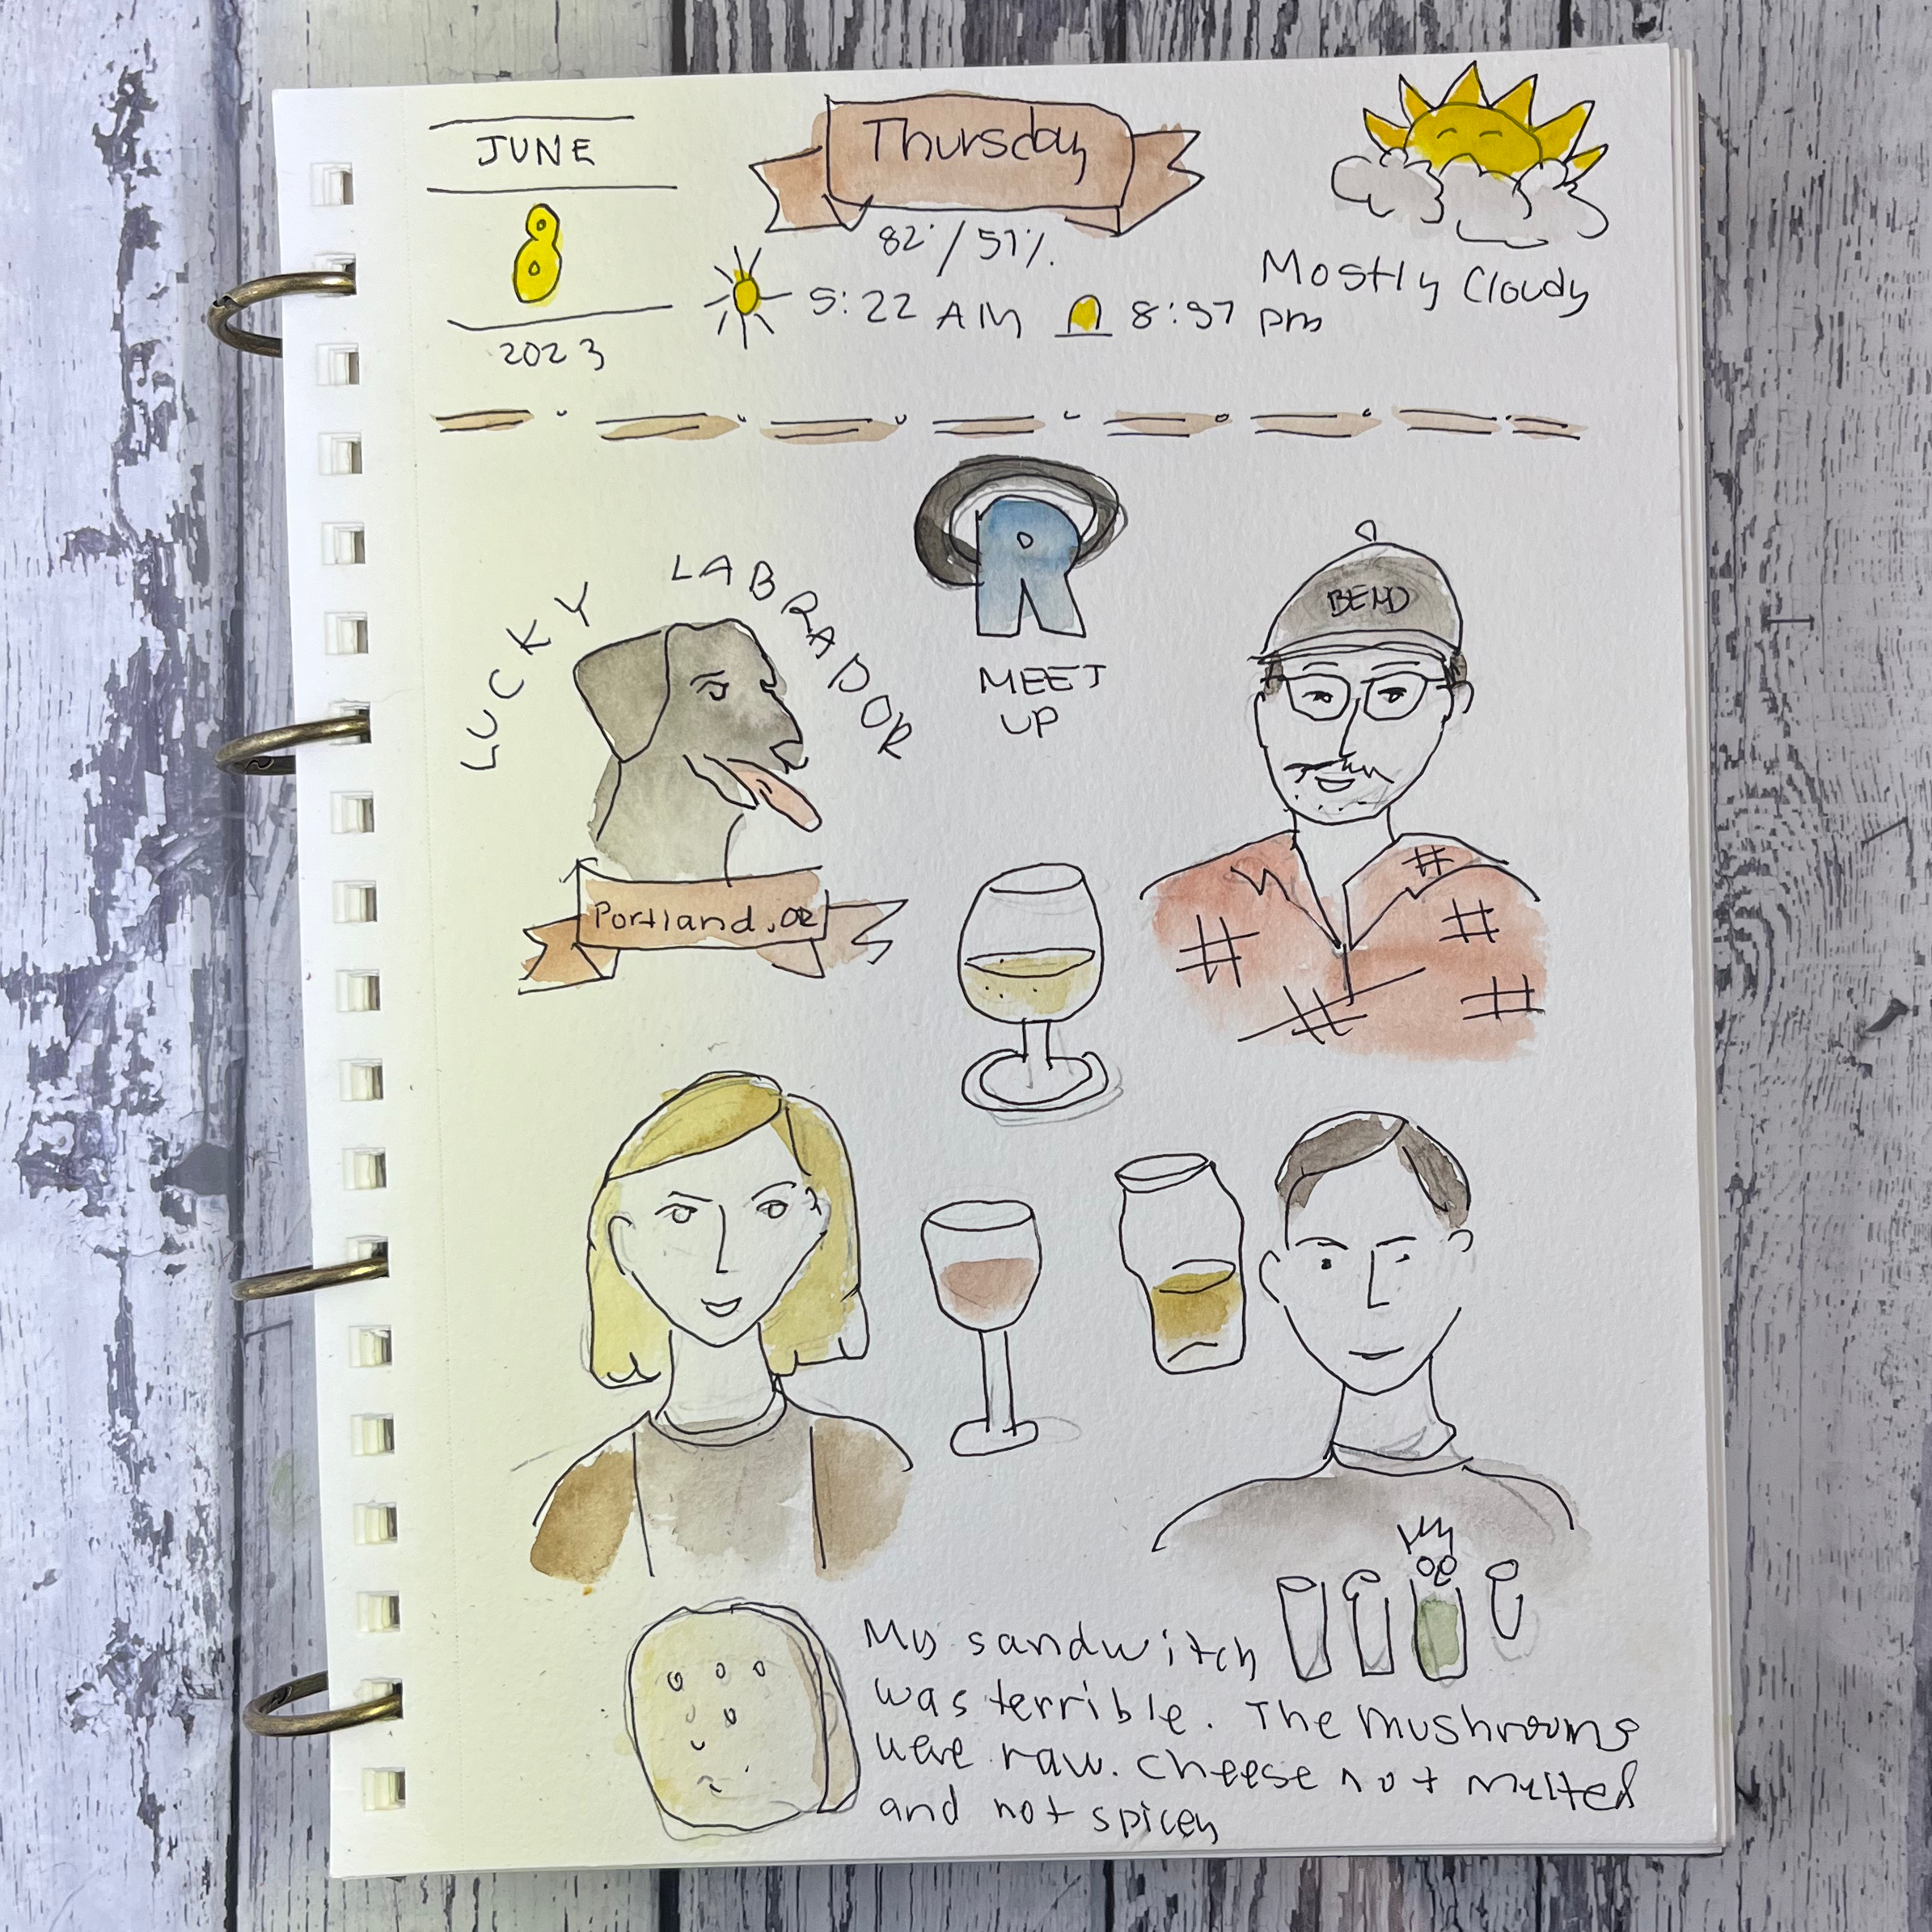 JUNE
8
2023
Thursday
82°/57%.
5:22 AM 8:57 pm
Mostly Cloudy
LUCKY LABRADOR
Portland, OR
R
MEET
UP
BEND
My sandwitch
was terrible. The mushrooms
were raw. cheese not melted
and not spicey